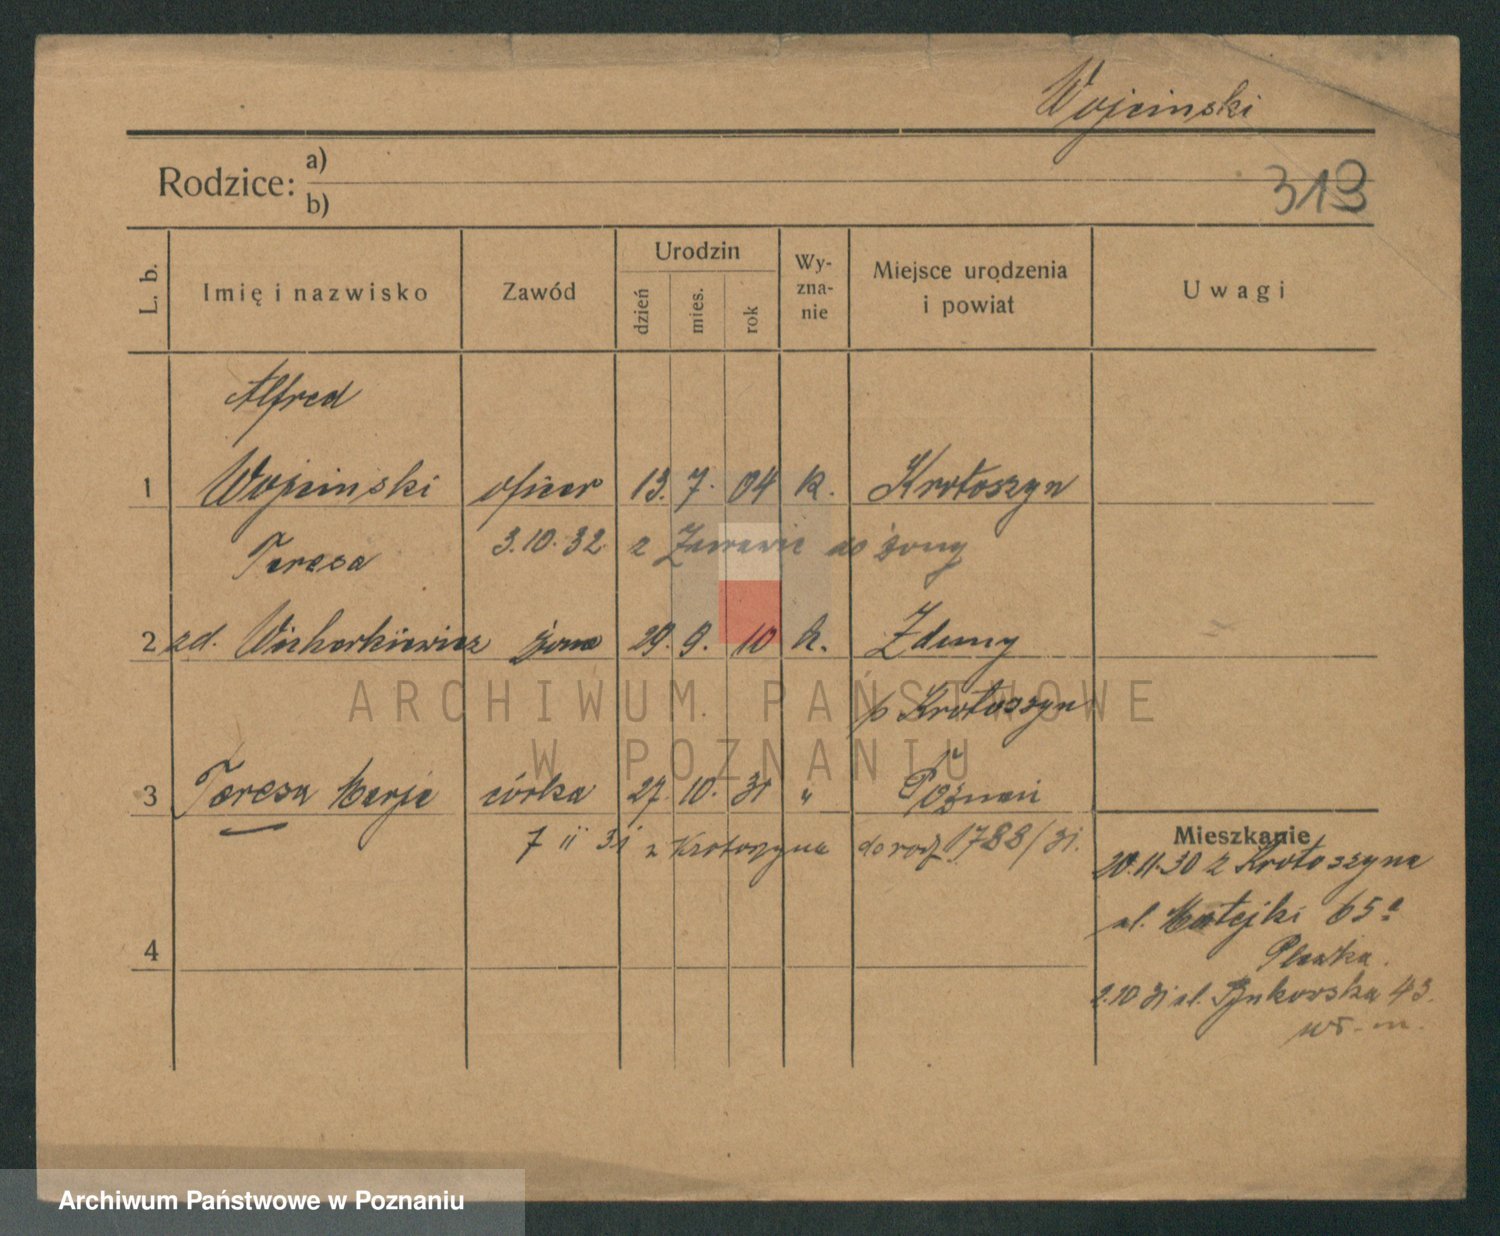 Wojciński
Rodzice: a)
b)
313
L. b. Imię i nazwisko Zawód Urodzin dzień mies. rok Wy-zna-nie Miejsce urodzenia i powiat Uwagi
Alfred
1 Wojciński oficer 13. 7. 04 k. Krotoszyn
Teresa 3.10.32 z do żony
2 zd. żona 29. 9. 10 k. Zduny
p Krotoszyn
3 Teresa Marja córka 27. 10. 31 " Poznań
7 11 31 z Krotoszyna do rodz. 1788/31.
Mieszkanie
20.11.30 z Krotoszyna
ul. Matejki 65a
4
2.10 31 ul. Bukowska 43.
ARCHIWUM PAŃSTWOWE
W POZNANIU
Archiwum Państwowe w Poznaniu